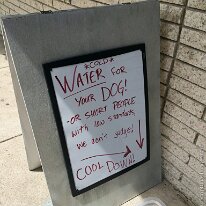 *COLD*
WATER FOR
YOUR DOG!
-OR SHORT PEOPLE
with low standards,
we don't judge!
COOL DOWN!